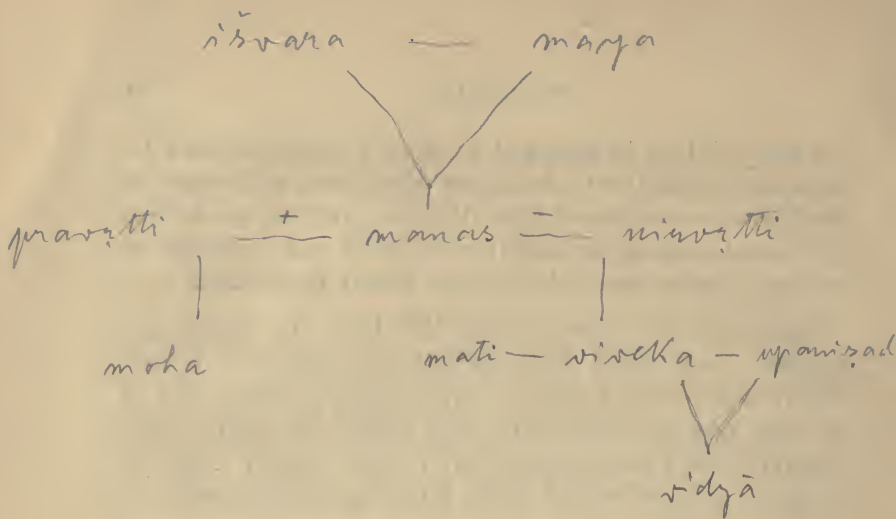 išvara — maya
pravṛtti + manas – nivṛtti
moha mati — viveka — upaniṣad
vidyā